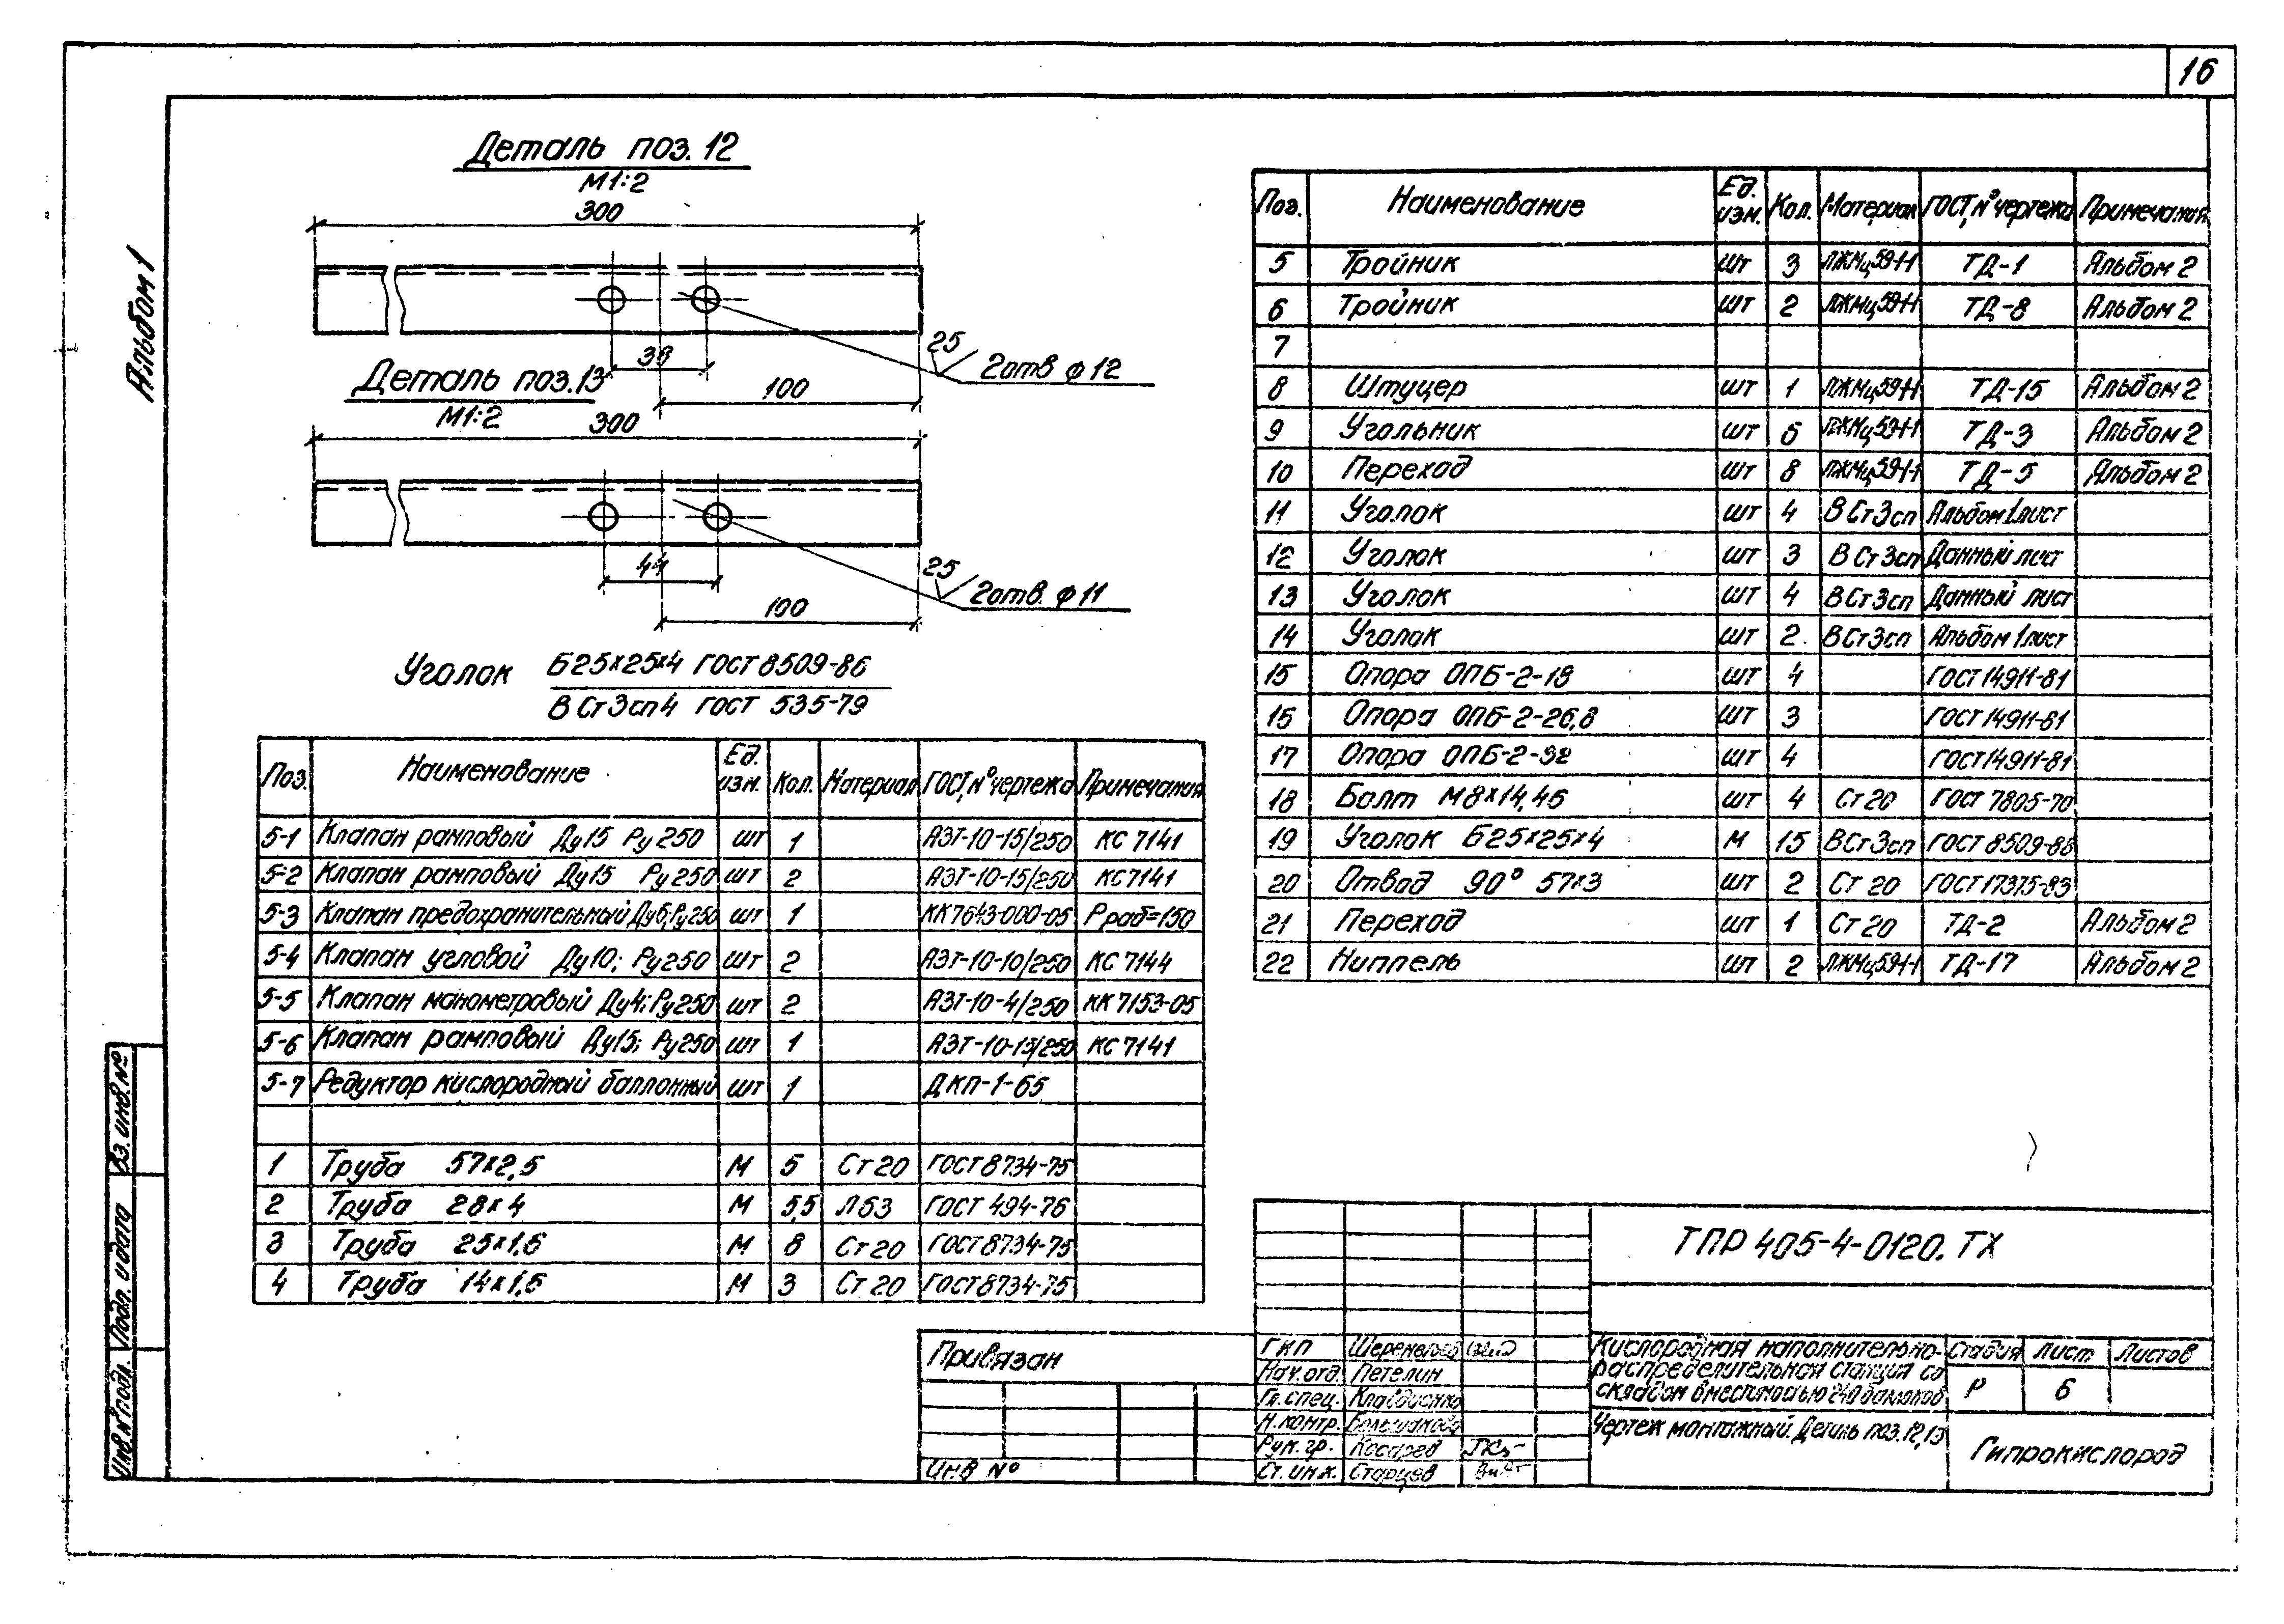 16
Альбом 1
Деталь поз. 12
М1:2
300
38
100
25
2отв ф12
Деталь поз.13
М1:2
300
44
100
25
2отв. ф11
Уголок Б25х25х4 ГОСТ 8509-86
В Ст3сп4 ГОСТ 535-79
Поз. Наименование Ед. изм. Кол. Материал ГОСТ, №чертежа Примечания
5-1 Клапан рамповый Ду15 Ру 250 шт 1 АЗТ-10-15/250 КС 7141
5-2 Клапан рамповый Ду15 Ру250 шт 2 АЗТ-10-15/250 КС7141
5-3 Клапан предохранительный Ду6;Ру250 шт 1 КК7643-000-05 Рраб=150
5-4 Клапан угловой Ду10; Ру250 шт 2 АЗТ-10-10/250 КС 7144
5-5 Клапан манометровый Ду4;Ру250 шт 2 АЗТ-10-4/250 КК 7153-05
5-6 Клапан рамповый Ду15; Ру250 шт 1 АЗТ-10-15/250 КС 7141
5-7 Редуктор кислородный баллонный шт 1 ДКП-1-65
1 Труба 57х2,5 М 5 Ст20 ГОСТ8734-75
2 Труба 28х4 М 5,5 Л63 ГОСТ 494-76
3 Труба 25х1,6 М 8 Ст20 ГОСТ8734-75
4 Труба 14х1,6 М 3 Ст 20 ГОСТ8734-75
Поз. Наименование Ед. изм. Кол. Материал ГОСТ, №чертежа Примечания
5 Тройник шт 3 ЛЖМц59-1-1 ТД-1 Альбом 2
6 Тройник шт 2 ЛЖМц59-1-1 ТД-8 Альбом 2
7
8 Штуцер шт 1 ЛЖМц59-1-1 ТД-15 Альбом 2
9 Угольник шт 6 ЛЖМц59-1-1 ТД-3 Альбом 2
10 Переход шт 8 ЛЖМц59-1-1 ТД-5 Альбом 2
11 Уголок шт 4 В Ст3сп Альбом 1 лист
12 Уголок шт 3 В Ст3сп Данный лист
13 Уголок шт 4 В Ст3сп Данный лист
14 Уголок шт 2 ВСт3сп Альбом 1 лист
15 Опора ОПБ-2-18 шт 4 ГОСТ14911-81
16 Опора ОПБ-2-26,8 шт 3 ГОСТ14911-81
17 Опора ОПБ-2-32 шт 4 ГОСТ14911-81
18 Болт М8х14,46 шт 4 Ст20 ГОСТ 7805-70
19 Уголок Б25х25х4 М 15 ВСт3сп ГОСТ 8509-86
20 Отвод 90° 57х3 шт 2 Ст 20 ГОСТ17375-83
21 Переход шт 1 Ст 20 ТД-2 Альбом 2
22 Ниппель шт 2 ЛЖМц59-1-1 ТД-17 Альбом 2
Вз. инв. №
Подп. и дата
Инв № подл.
Привязан
Инв №
ТПР 405-4-0120. ТХ
ГИП
Нач. отд. Петелин
Гл. спец. Клавдиенко
Н. контр. Большакова
Рук. гр. Косарев
Ст. инж. Старцев
Кислородная наполнительно-
распределительная станция со
складом вместимостью 240 баллонов
Стадия Лист Листов
Р 6
Чертеж монтажный. Деталь поз. 12,13
Гипрокислород